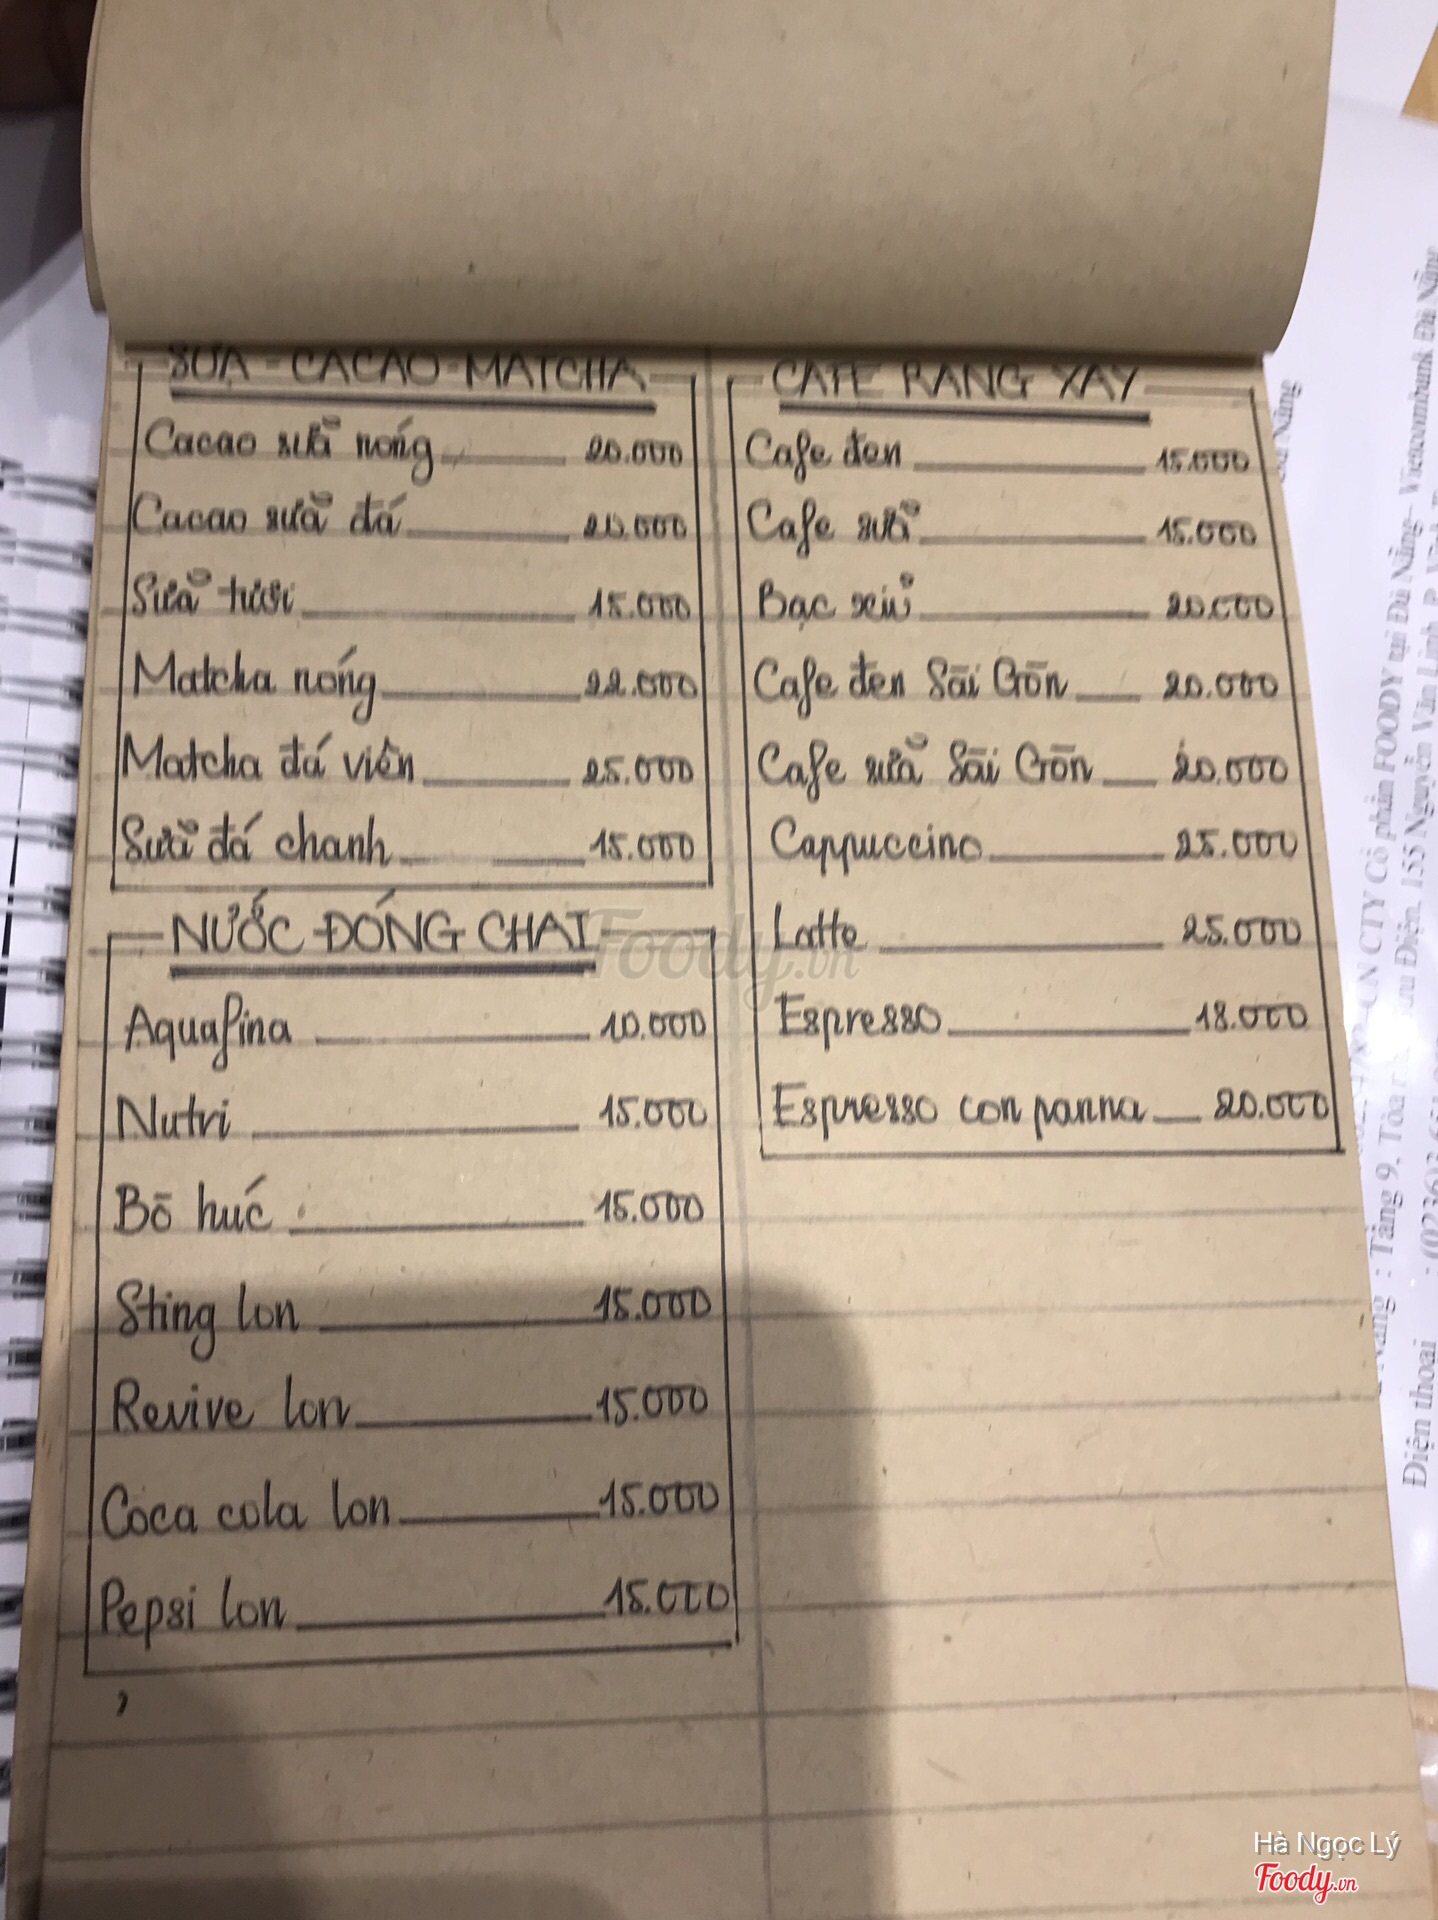 SỮA - CACAO - MATCHA
Cacao sữa nóng 20.000
Cacao sữa đá 20.000
Sữa tươi 15.000
Matcha nóng 22.000
Matcha đá viên 25.000
Sữa đá chanh 15.000
NƯỚC ĐÓNG CHAI
Aquafina 10.000
Nutri 15.000
Bò húc 15.000
Sting lon 15.000
Revive lon 15.000
Coca cola lon 15.000
Pepsi lon 15.000
CAFE RANG XAY
Cafe đen 15.000
Cafe sữa 15.000
Bạc xỉu 20.000
Cafe đen Sài Gòn 20.000
Cafe sữa Sài Gòn 20.000
Cappuccino 25.000
Latte 25.000
Espresso 18.000
Espresso con panna 20.000
Foody.vn
CN CTY Cổ phần FOODY tại Đà Nẵng - Vietcombank Đà Nẵng
155 Nguyễn Văn Linh, P.
: Tầng 9, Tòa
Điện thoại
Hà Ngọc Lý
Foody.vn